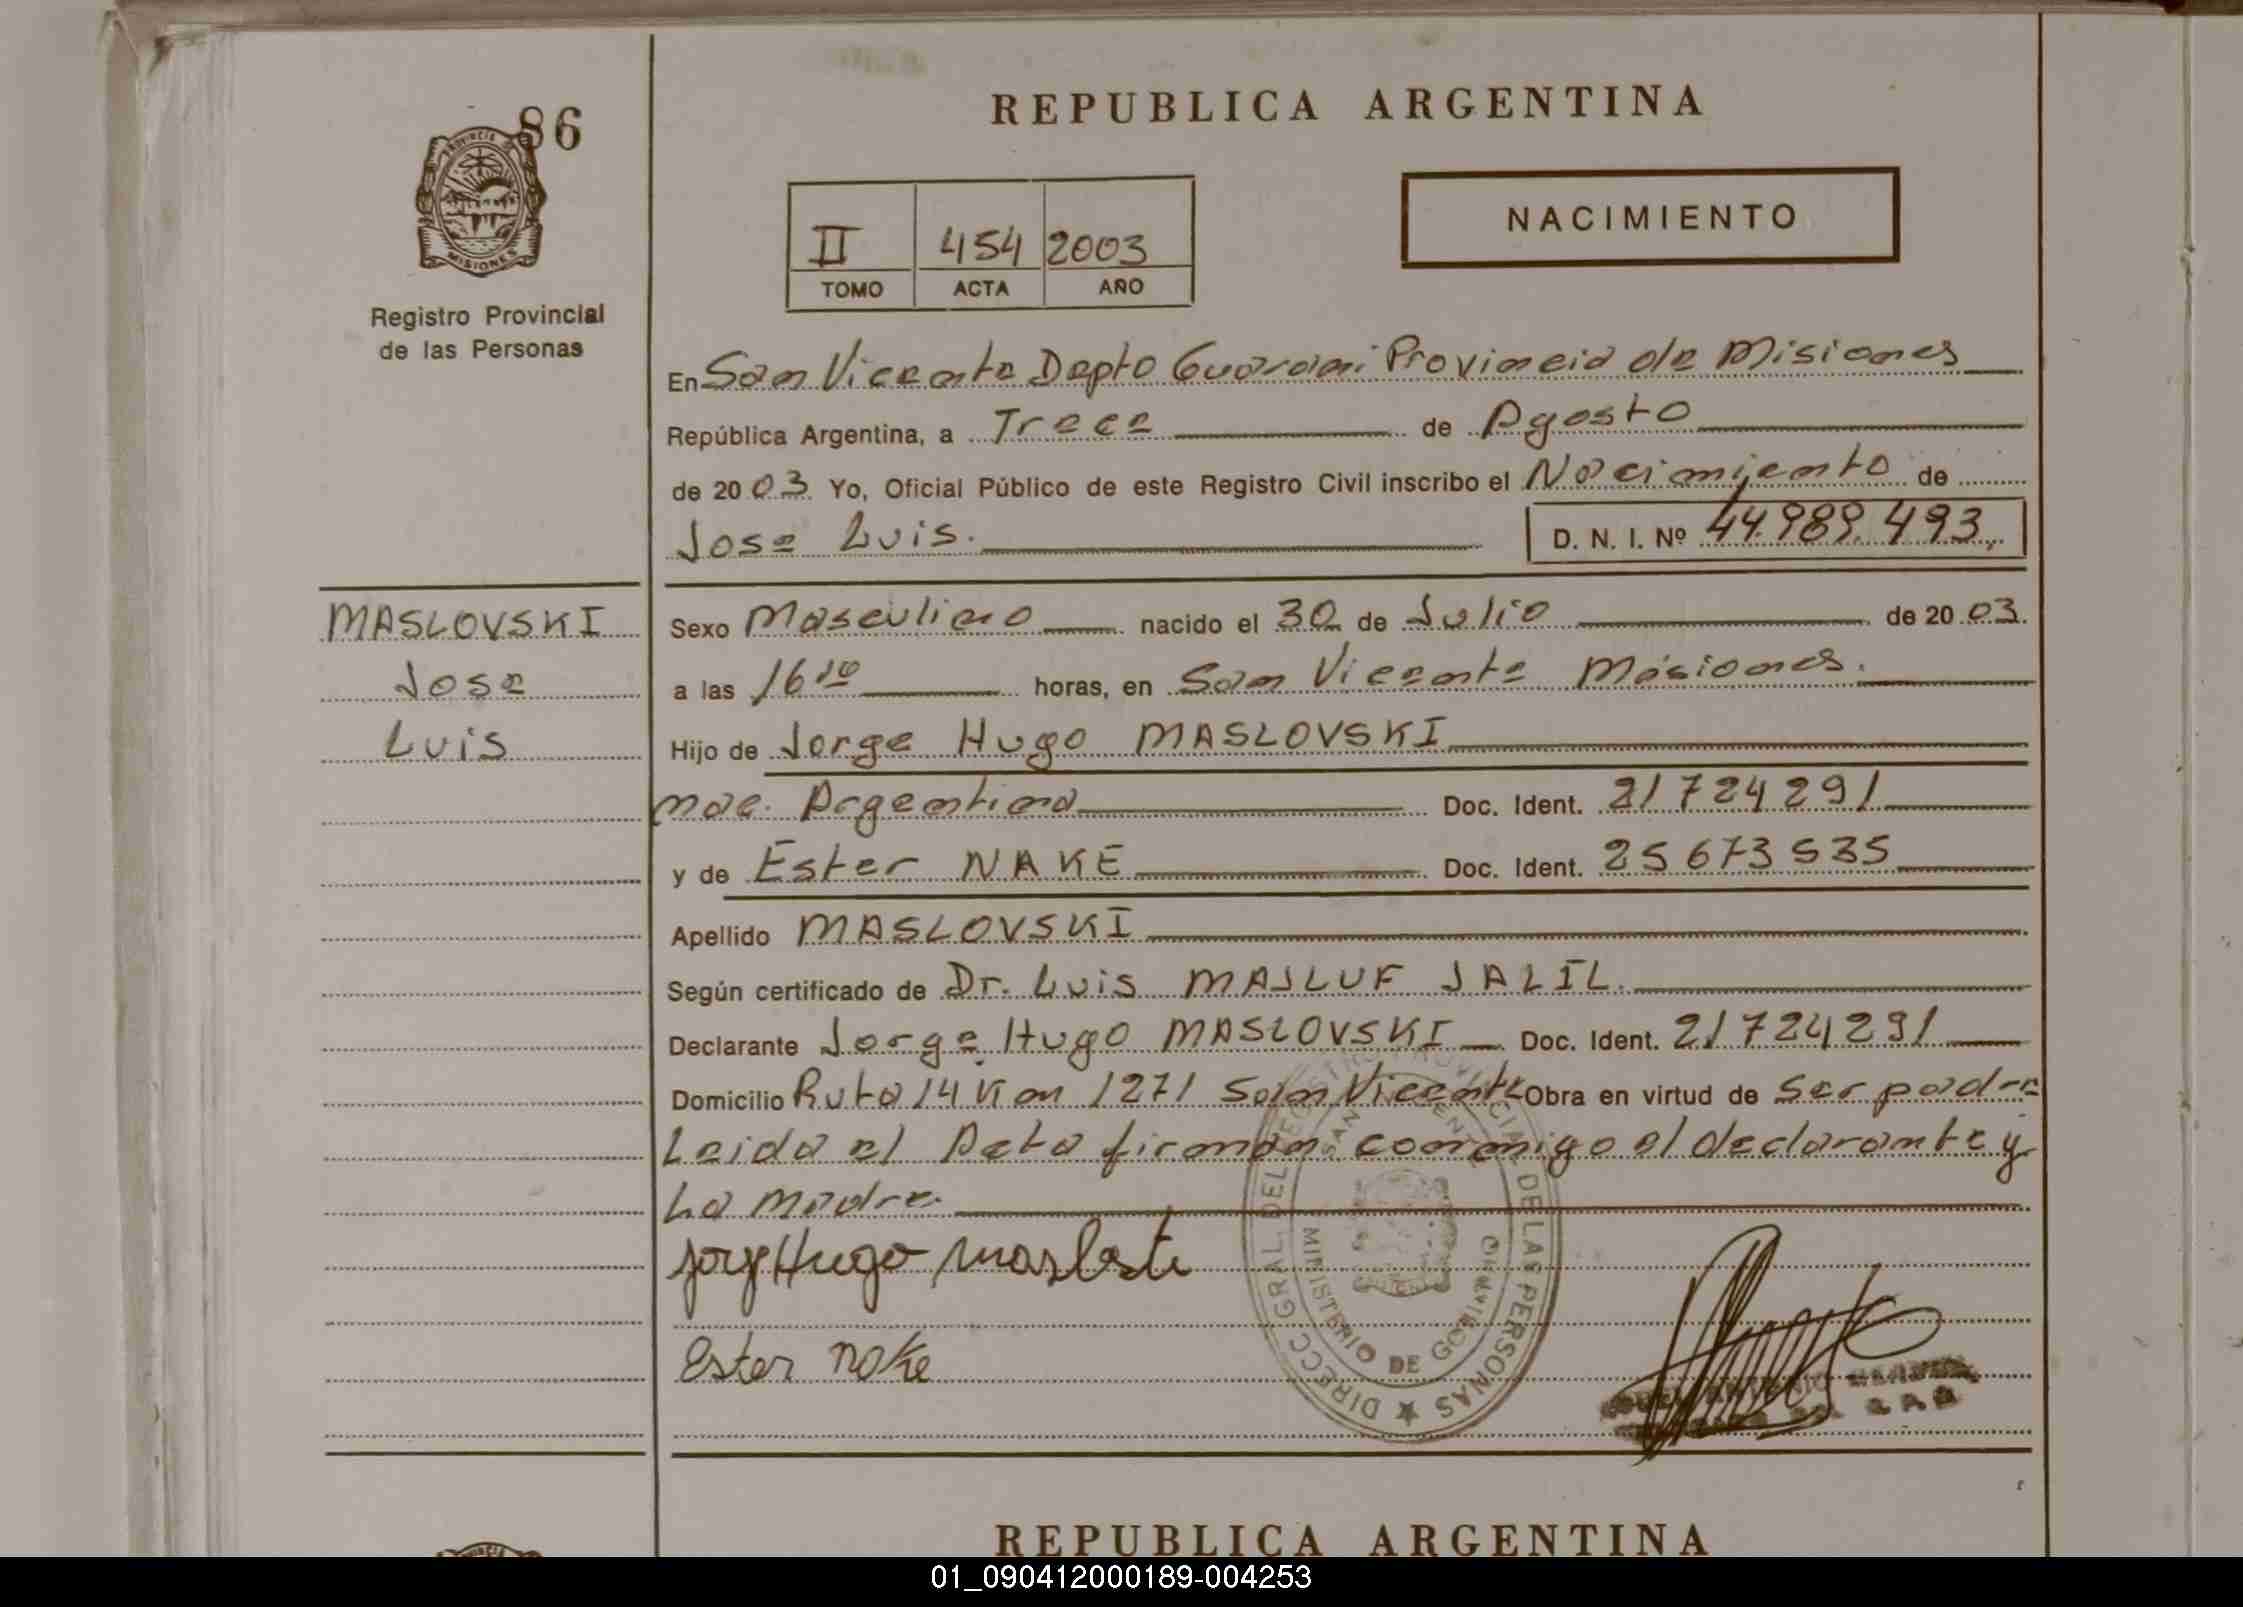 86
PROVINCIA DE
MISIONES
Registro Provincial
de las Personas
REPUBLICA ARGENTINA
NACIMIENTO
II 454 2003
TOMO ACTA AÑO
En San Vicente Depto Guarani Provincia de Misiones
República Argentina, a Trece de Agosto
de 2003 Yo, Oficial Público de este Registro Civil inscribo el Nacimiento de
Jose Luis. D. N. I. Nº 44.989.493
MASLOVSKI
Jose
Luis
Sexo Masculino nacido el 30 de Julio de 2003.
a las 16 10 horas, en San Vicente Misiones.
Hijo de Jorge Hugo MASLOVSKI
nac. Argentina Doc. Ident. 21724291
y de Ester NAKE Doc. Ident. 25673535
Apellido MASLOVSKI
Según certificado de Dr. Luis MASLUF JALIL.
Declarante Jorge Hugo MASLOVSKI Doc. Ident. 21724291
Domicilio Ruta 14 Km 1271 San Vicente Obra en virtud de Ser padre
Leida el Acta firman conmigo el declarante y
La madre.
Jorge Hugo
Ester Nake
DIRECC GRAL DEL REGISTRO PROVINCIAL DE LAS PERSONAS
SAN VICENTE
MINISTERIO DE GOBIERNO
REPUBLICA ARGENTINA
01_090412000189-004253